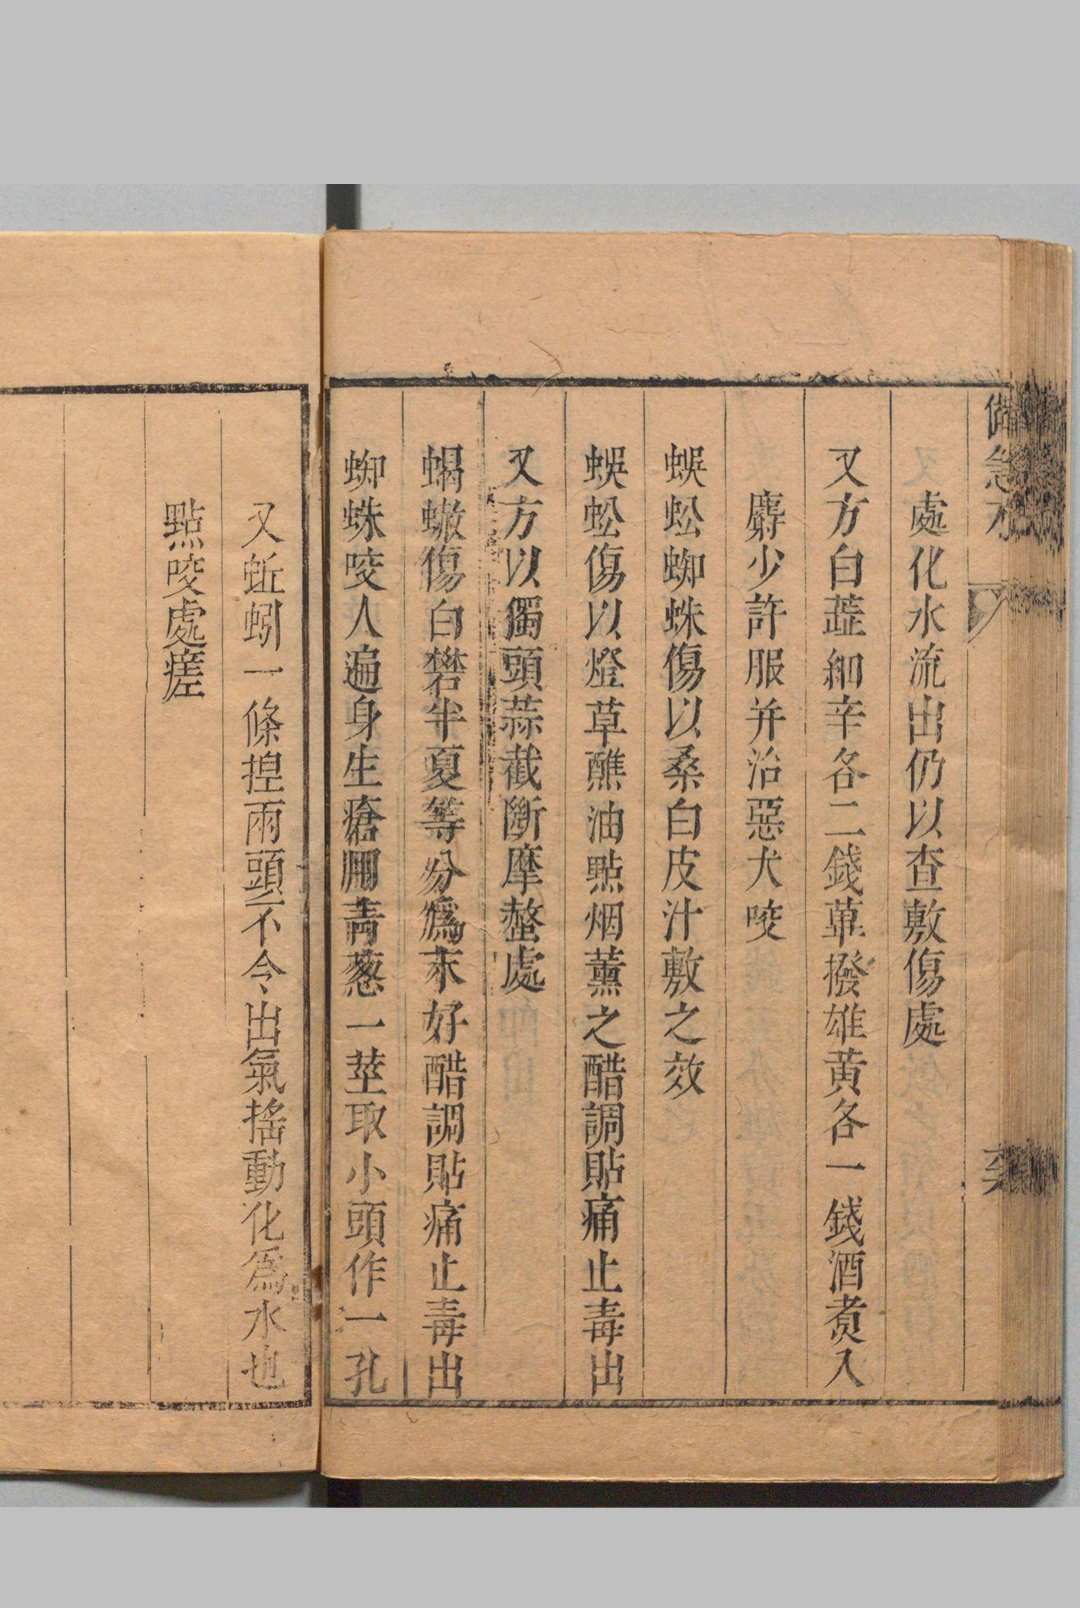 備急方
處化水流出仍以查敷傷處
又方白蔬細辛各二錢蓽撥雄黃各一錢酒煮入
麝少許服并治惡犬咬
蜈蚣蜘蛛傷以桑白皮汁敷之效
蜈蚣傷以燈草蘸油點烟薰之醋調貼痛止毒出
又方以獨頭蒜截斷摩螫處
蝎蠍傷白礬半夏等分爲末好醋調貼痛止毒出
蜘蛛咬人遍身生瘡用青葱一莖取小頭作一孔
又蚯蚓一條捏兩頭不令出氣搖動化爲水也
點咬處瘥